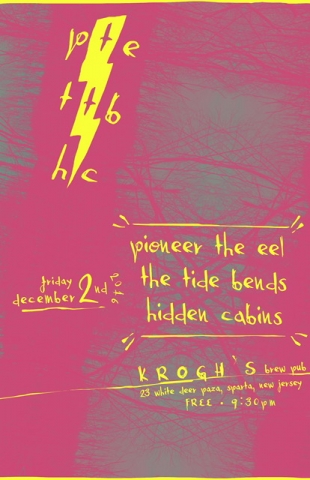 p t e
t t b
h c
pioneer the eel
the tide bends
hidden cabins
friday
december 2nd
2016
KROGH'S brew pub
23 white deer paza, sparta, new jersey
FREE · 9:30pm